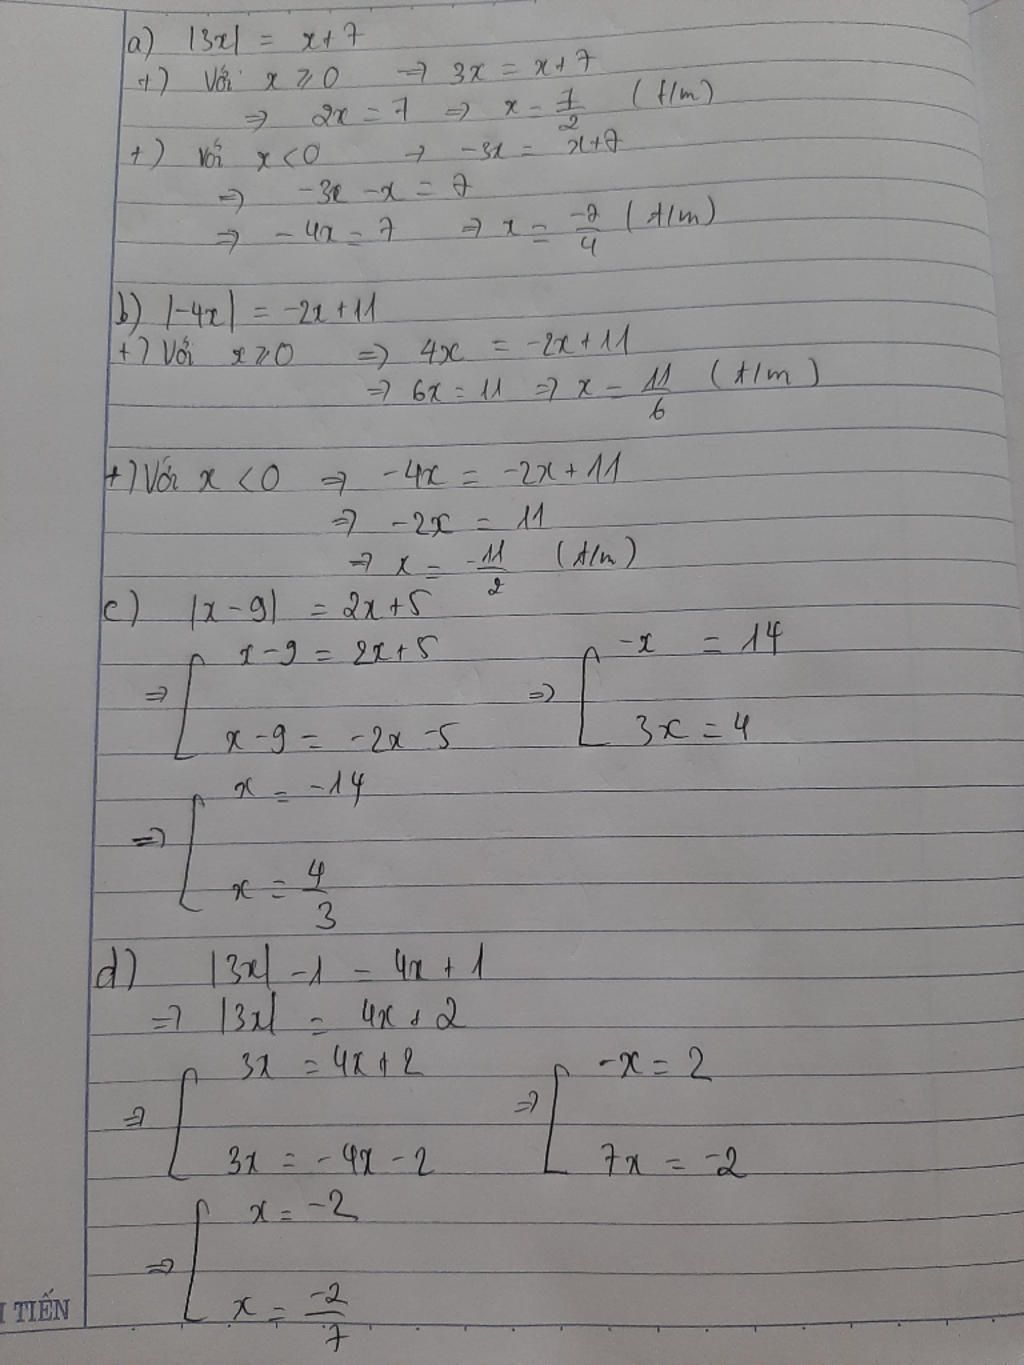 a) |3x| = x+7
+) Với x ⩾ 0 ⇒ 3x = x+7
⇒ 2x = 7 ⇒ x = 7/2 (t/m)
+) Với x < 0 → -3x = x+7
⇒ -3x - x = 7
⇒ - 4x = 7 ⇒ x = -7/4 (t/m)
b) |-4x| = -2x+11
+) Với x ⩾ 0 ⇒ 4x = -2x+11
⇒ 6x = 11 ⇒ x = 11/6 (t/m)
+) Với x < 0 ⇒ -4x = -2x+11
⇒ -2x = 11
⇒ x = -11/2 (t/m)
c) |x-9| = 2x+5
⇒ [ x-9 = 2x+5 ⇒ [ -x = 14
x-9 = -2x-5 3x = 4
⇒ [ x = -14
x = 4/3
d) |3x| -1 = 4x+1
⇒ |3x| = 4x+2
⇒ [ 3x = 4x+2 ⇒ [ -x = 2
3x = -4x-2 7x = -2
⇒ [ x = -2
x = -2/7
TIẾN